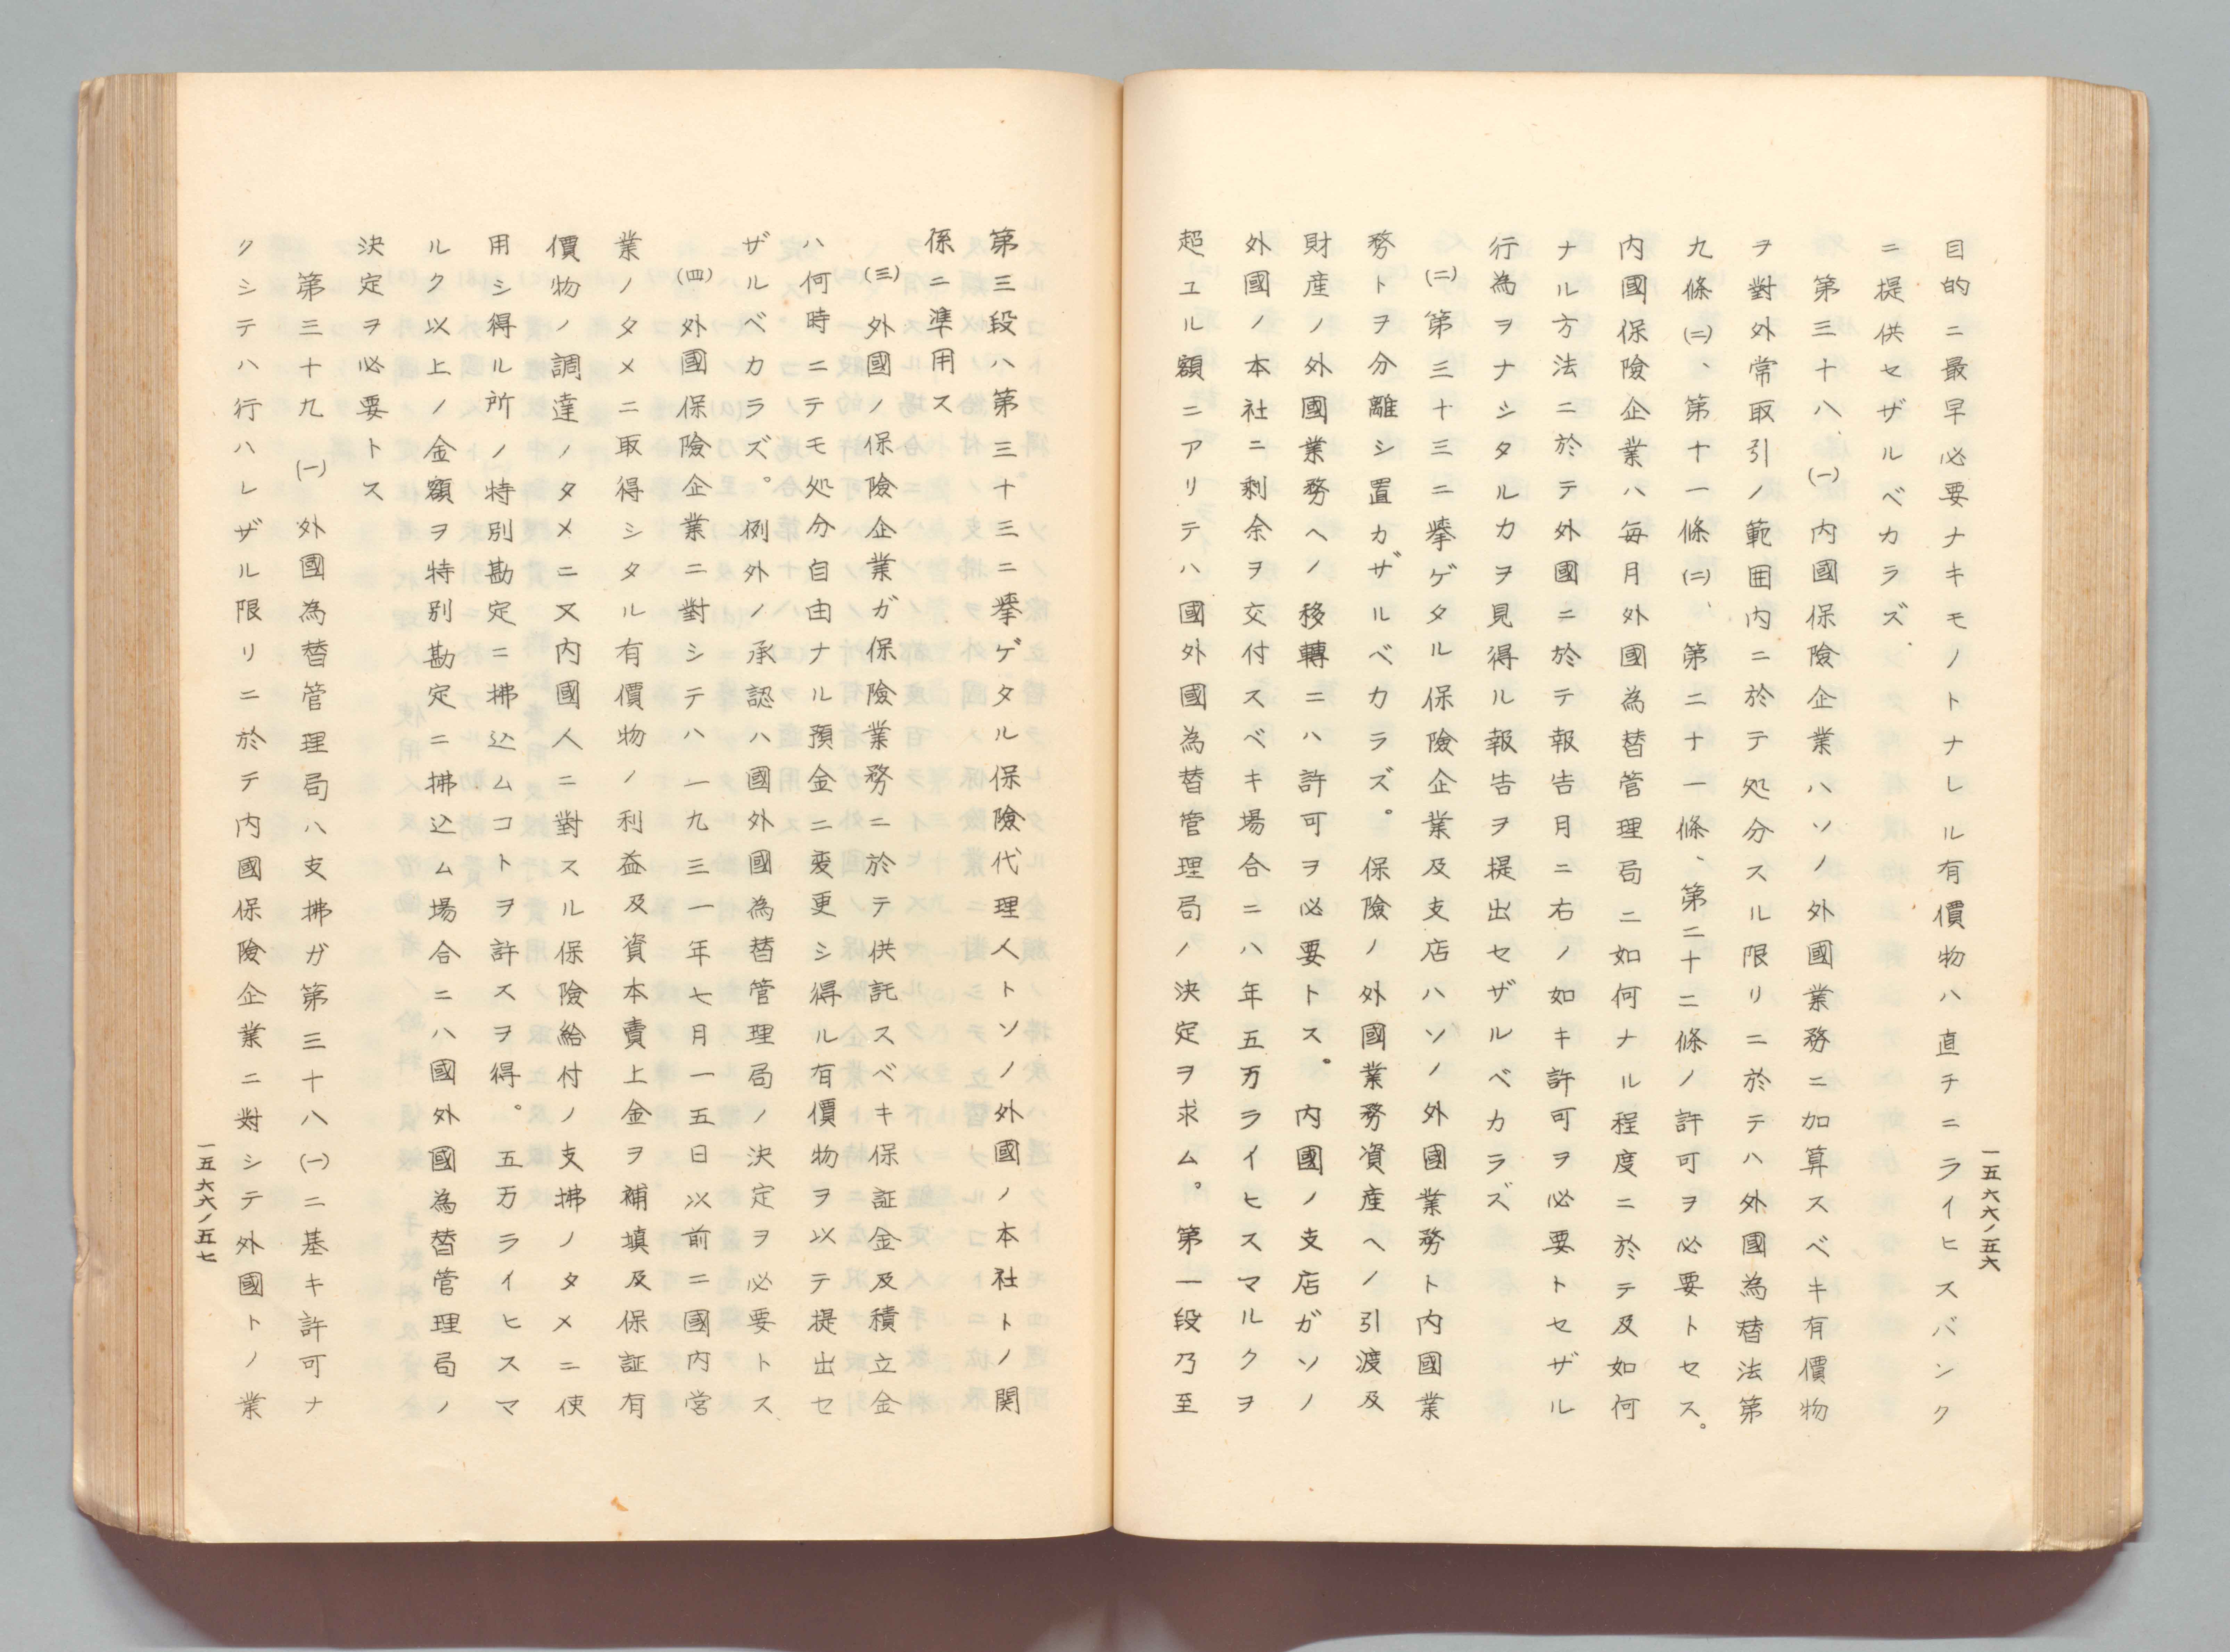 目的ニ最早必要ナキモノトナレル有價物ハ直チニライヒスバンク
ニ提供セザルベカラズ
第三十八、㈠内國保險企業ハソノ外國業務ニ加算スベキ有價物
ヲ對外常取引ノ範囲内ニ於テ処分スル限リニ於テハ外國為替法第
九條㈡、第十一條㈡、第二十一條、第二十二條ノ許可ヲ必要トセス。
内國保險企業ハ毎月外國為替管理局ニ如何ナル程度ニ於テ及如何
ナル方法ニ於テ外國ニ於テ報告月ニ右ノ如キ許可ヲ必要トセザル
行為ヲナシタルカヲ見得ル報告ヲ提出セザルベカラズ
㈡第三十三ニ擧ゲタル保險企業及支店ハソノ外國業務ト内國業
務トヲ分離シ置カザルベカラズ。保險ノ外國業務資産ヘノ引渡及
財産ノ外國業務ヘノ移轉ニハ許可ヲ必要トス。内國ノ支店ガソノ
外國ノ本社ニ剰余ヲ交付スベキ場合ニハ年五万ライヒスマルクヲ
超ユル額ニアリテハ國外國為替管理局ノ決定ヲ求ム。第一段乃至
一五六六ノ五六
第三段ハ第三十三ニ擧ゲタル保險代理人トソノ外國ノ本社トノ関
係ニ準用ス
㈢外國ノ保險企業ガ保險業務ニ於テ供託スベキ保証金及積立金
ハ何時ニテモ処分自由ナル預金ニ変更シ得ル有價物ヲ以テ提出セ
ザルベカラズ。例外ノ承認ハ國外國為替管理局ノ決定ヲ必要トス
㈣外國保險企業ニ對シテハ一九三一年七月一五日以前ニ國内営
業ノタメニ取得シタル有價物ノ利益及資本賣上金ヲ補填及保証有
價物ノ調達ノタメニ又内國人ニ對スル保險給付ノ支拂ノタメニ使
用シ得ル所ノ特別勘定ニ拂込ムコトヲ許スヲ得。五万ライヒスマ
ルク以上ノ金額ヲ特別勘定ニ拂込ム場合ニハ國外國為替管理局ノ
決定ヲ必要トス
第三十九㈠外國為替管理局ハ支拂ガ第三十八㈠ニ基キ許可ナ
クシテハ行ハレザル限リニ於テ内國保險企業ニ対シテ外國トノ業
一五六六ノ五七